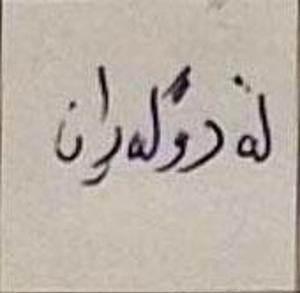 لە دوگەڕان